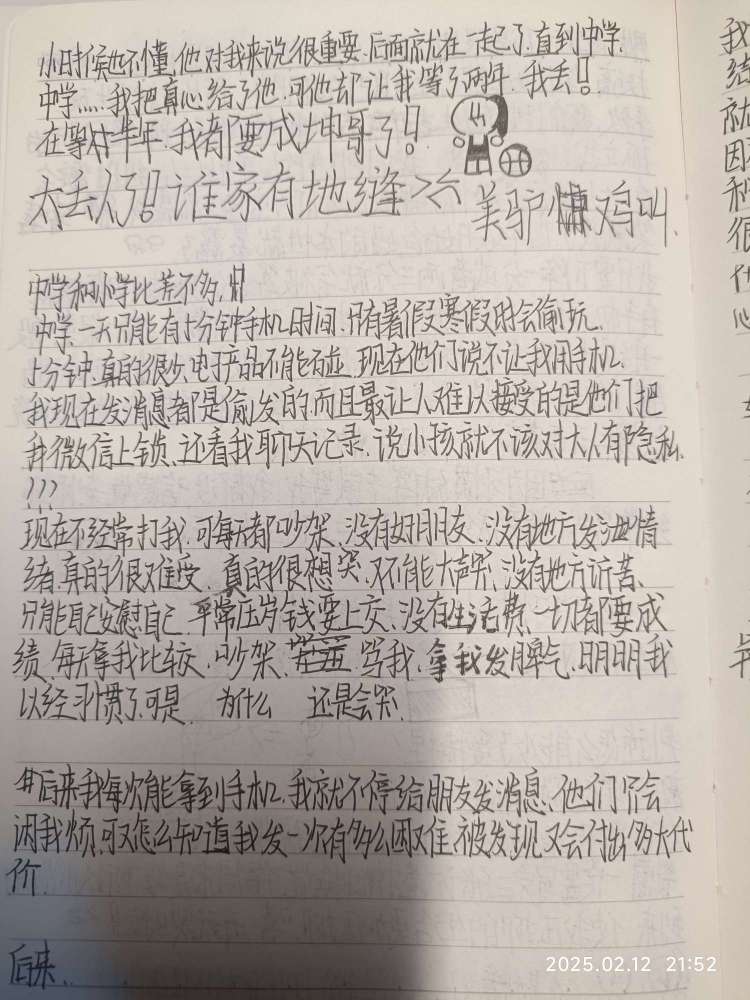 小时候也不懂,他对我来说很重要,后面就在一起了,直到中学,
中学.....我把真心给了他,可他却让我等了两年,我丢!!
在等对半年,我都要成坤哥了!!
太丢人了!!谁家有地缝><
美驴 鸡叫.
中学和小学比差不多,
中学,一天只能有十分钟手机时间,只有暑假寒假时会偷玩、
十分钟,真的很少,电子产品不能碰,现在他们说不让我用手机,
我现在发消息都是偷发的,而且最让人难以接受的是他们把
我微信上锁、还看我聊天记录,说小孩就不该对大人有隐私.
???
现在不经常打我,可每天都吵架、没有好朋友、没有地方发泄情
绪,真的很难受、真的很想哭,又不能大声哭、没有地方诉苦、
只能自己安慰自己,平常压岁钱要上交、没有生活费、一切都要成
绩,每天拿我比较,吵架、骂我,拿我发脾气,明明我
以经习惯了,可是 为什么 还是会哭、
后来我每次能拿到手机,我就不停给朋友发消息、他们只会
闲我烦,可又怎么知道我发一次有多么困难,被发现又会付出多大代
价.
后来..
我
就
因
和
很
心
2025.02.12 21:52